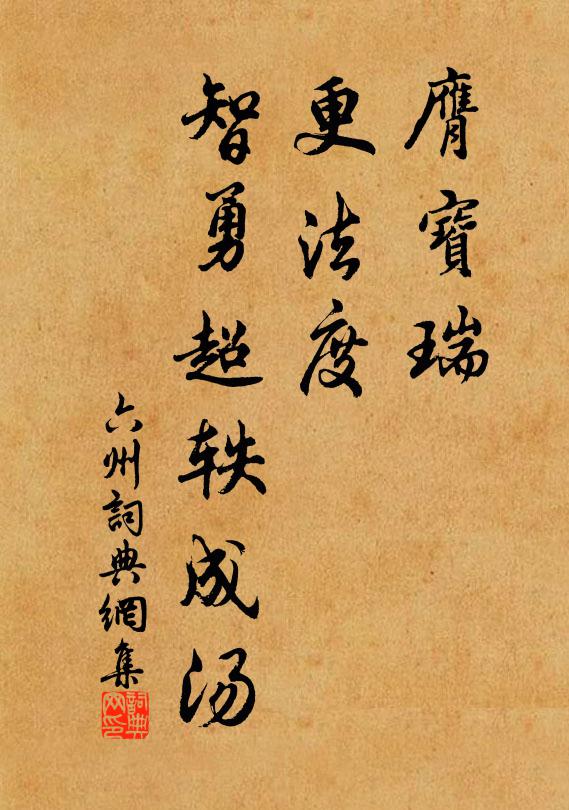 膺寶瑞
更法度
智勇超轶成汤
六州詞典網集
詞典网印